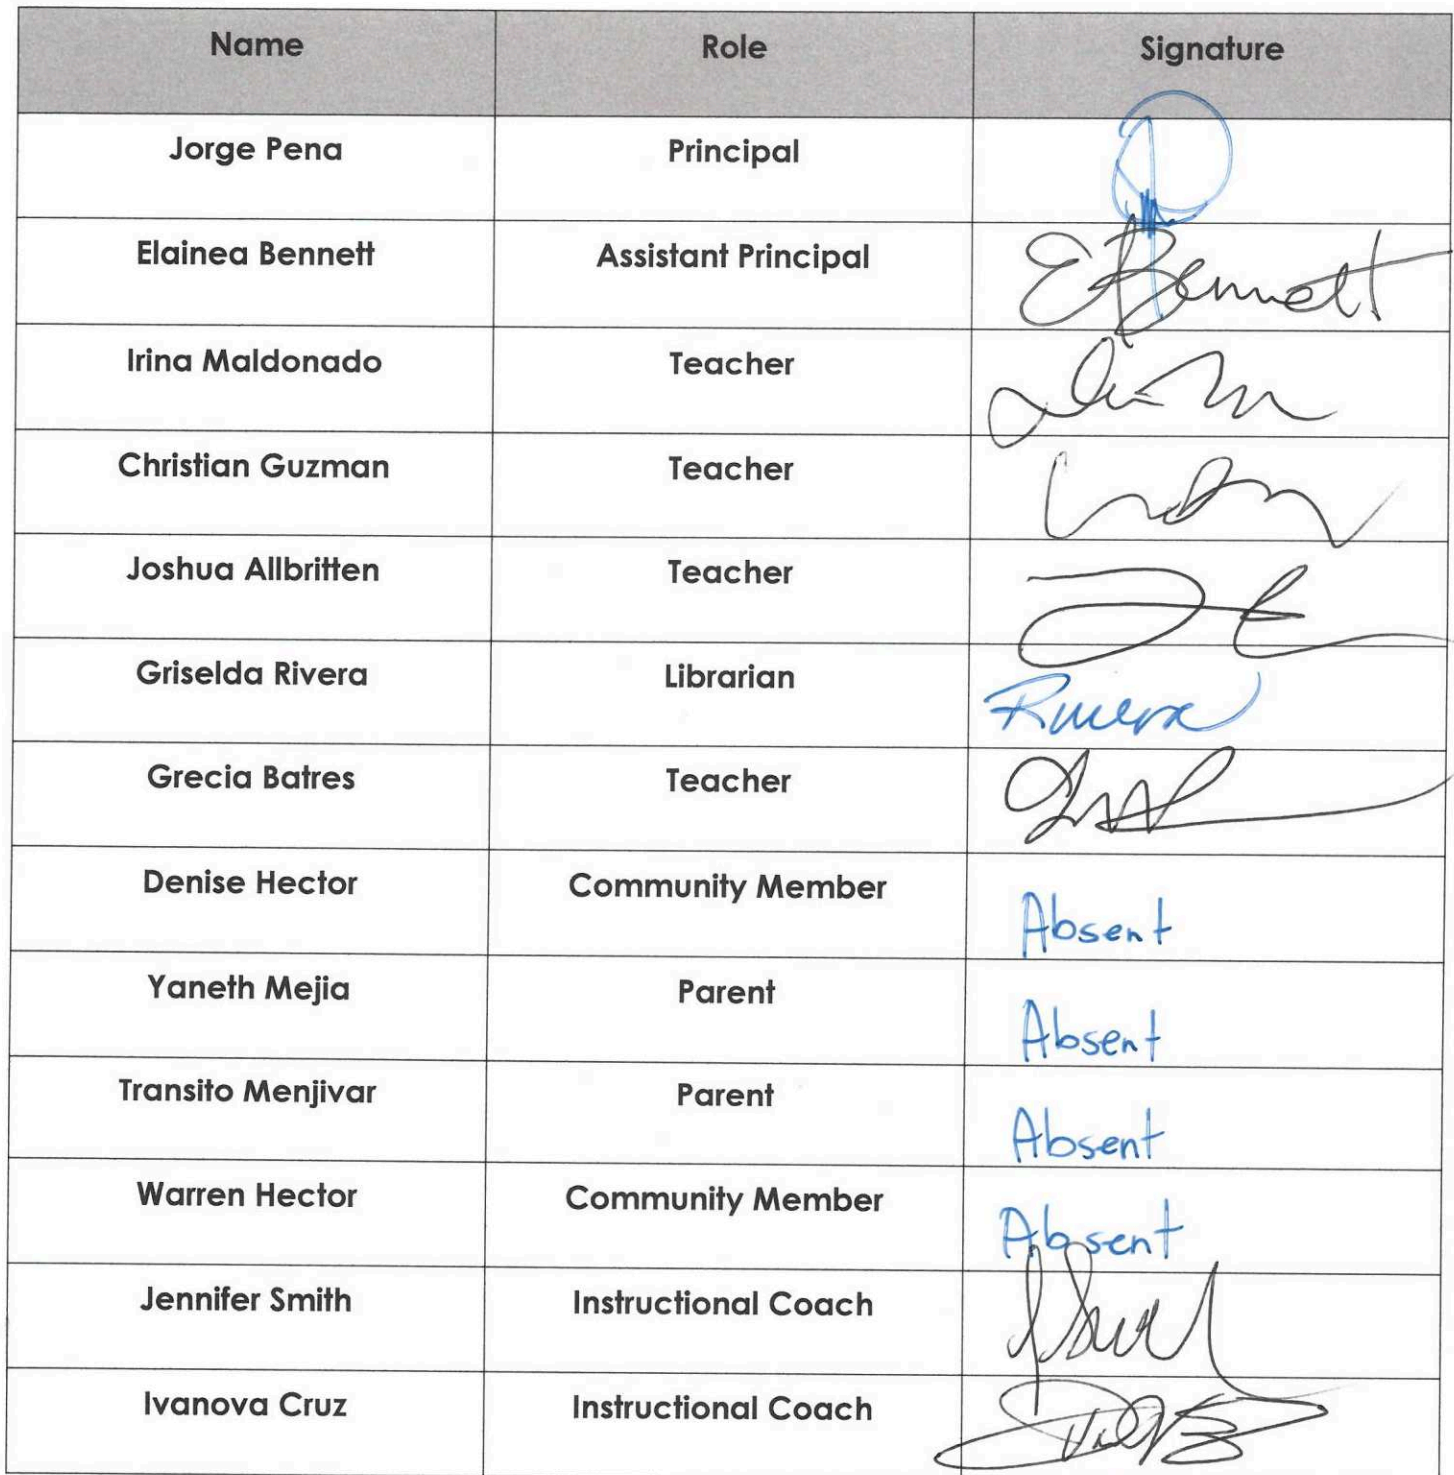 Name Role Signature
Jorge Pena Principal
Elainea Bennett Assistant Principal E Bennett
Irina Maldonado Teacher
Christian Guzman Teacher
Joshua Allbritten Teacher
Griselda Rivera Librarian Rivera
Grecia Batres Teacher
Denise Hector Community Member Absent
Yaneth Mejia Parent Absent
Transito Menjivar Parent Absent
Warren Hector Community Member Absent
Jennifer Smith Instructional Coach
Ivanova Cruz Instructional Coach